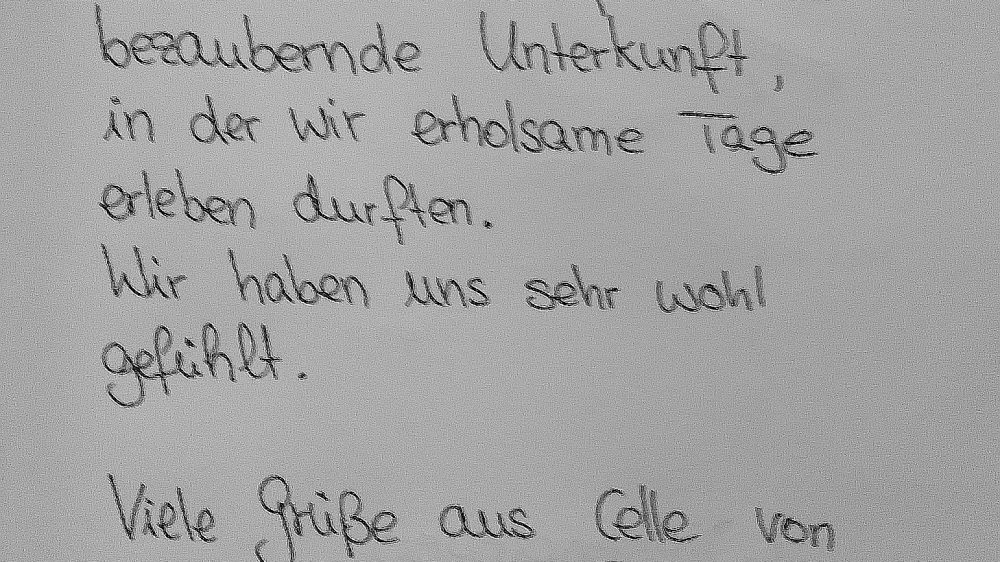 bezaubernde Unterkunft,
in der wir erholsame Tage
erleben durften.
Wir haben uns sehr wohl
gefühlt.
Viele Grüße aus Celle von